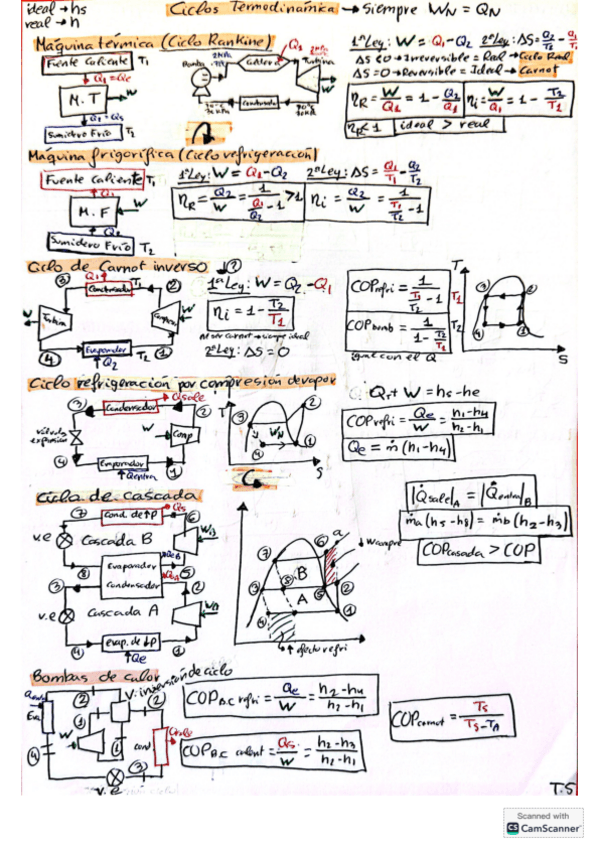 ideal → hs
real → h
Ciclos Termodinámica → Siempre WN = QN
Máquina térmica (Ciclo Rankine)
Fuente Caliente T1
Q1 = Qe
M.T → W
Sumidero Frío T2
Bomba Caldera Turbina
Q1
W
1ªLey: W = Q1-Q2 2ªLey: ΔS = Q2/T2 - Q1/T1
ΔS<0 → Irreversible = Real → Ciclo Real
ΔS=0 → Reversible = Ideal → Carnot
ηR = W/Q1 = 1 - Q2/Q1 ηi = W/Q1 = 1 - T2/T1
ηR<1 ideal > real
Máquina frigorífica (Ciclo refrigeración)
Fuente Caliente T1
Q1
M.F ← W
Q2
Sumidero Frío T2
1ªLey: W = Q1-Q2 2ªLey: ΔS = Q1/T1 - Q2/T2
ηR = Q2/W = 1/(Q1/Q2 - 1) > 1 ηi = Q2/W = 1/(T1/T2 - 1)
Ciclo de Carnot inverso ↓?
3 Q1 T1 2
Condensador
W Turbina W
4 Evaporador T2 1
Q2
1ªLey: W = Q2-Q1
ηi = 1 - T2/T1
Al ser carnot → siempre ideal
2ªLey: ΔS = 0
COPrefri = 1/(T1/T2 - 1)
COPbomb = 1/(1 - T2/T1)
igual con el Q
T
T1
T2
3 2
4 1
S
Ciclo refrigeración por compresión de vapor
3 Condensador Qsale 2
válvula expansión W Comp
4 Evaporador 1
Qentra
T
3 2
WN
4 1
S
Q + W = hs-he
COPrefri = Qe/W = h1-h4/h2-h1
Qe = ṁ(h1-h4)
Ciclo de cascada
7 Cond. de ↑P Qs 6
v.e Cascada B WB
8 Evaporador QeB 5
3 Condensador QsA 2
v.e Cascada A WA
4 evap. de ↓P 1
Qe
7 6 a
B
3 8 5 2
A
4 1
↓ Wcompre
↑ efecto refri
|Q̇sale|A = |Q̇entra|B
ṁa(h5-h8) = ṁb(h2-h3)
COPcascada > COP
Bombas de calor
v. inversión de ciclo
2 2
Eva W 1 1 cond
4 3
v.e
COPB.C refri = Qe/W = h2-h4/h2-h1
COPB.C calent = Qs/W = h2-h3/h2-h1
COPcarnot = Ts/Ts-TA
T.S
Scanned with
CS CamScanner